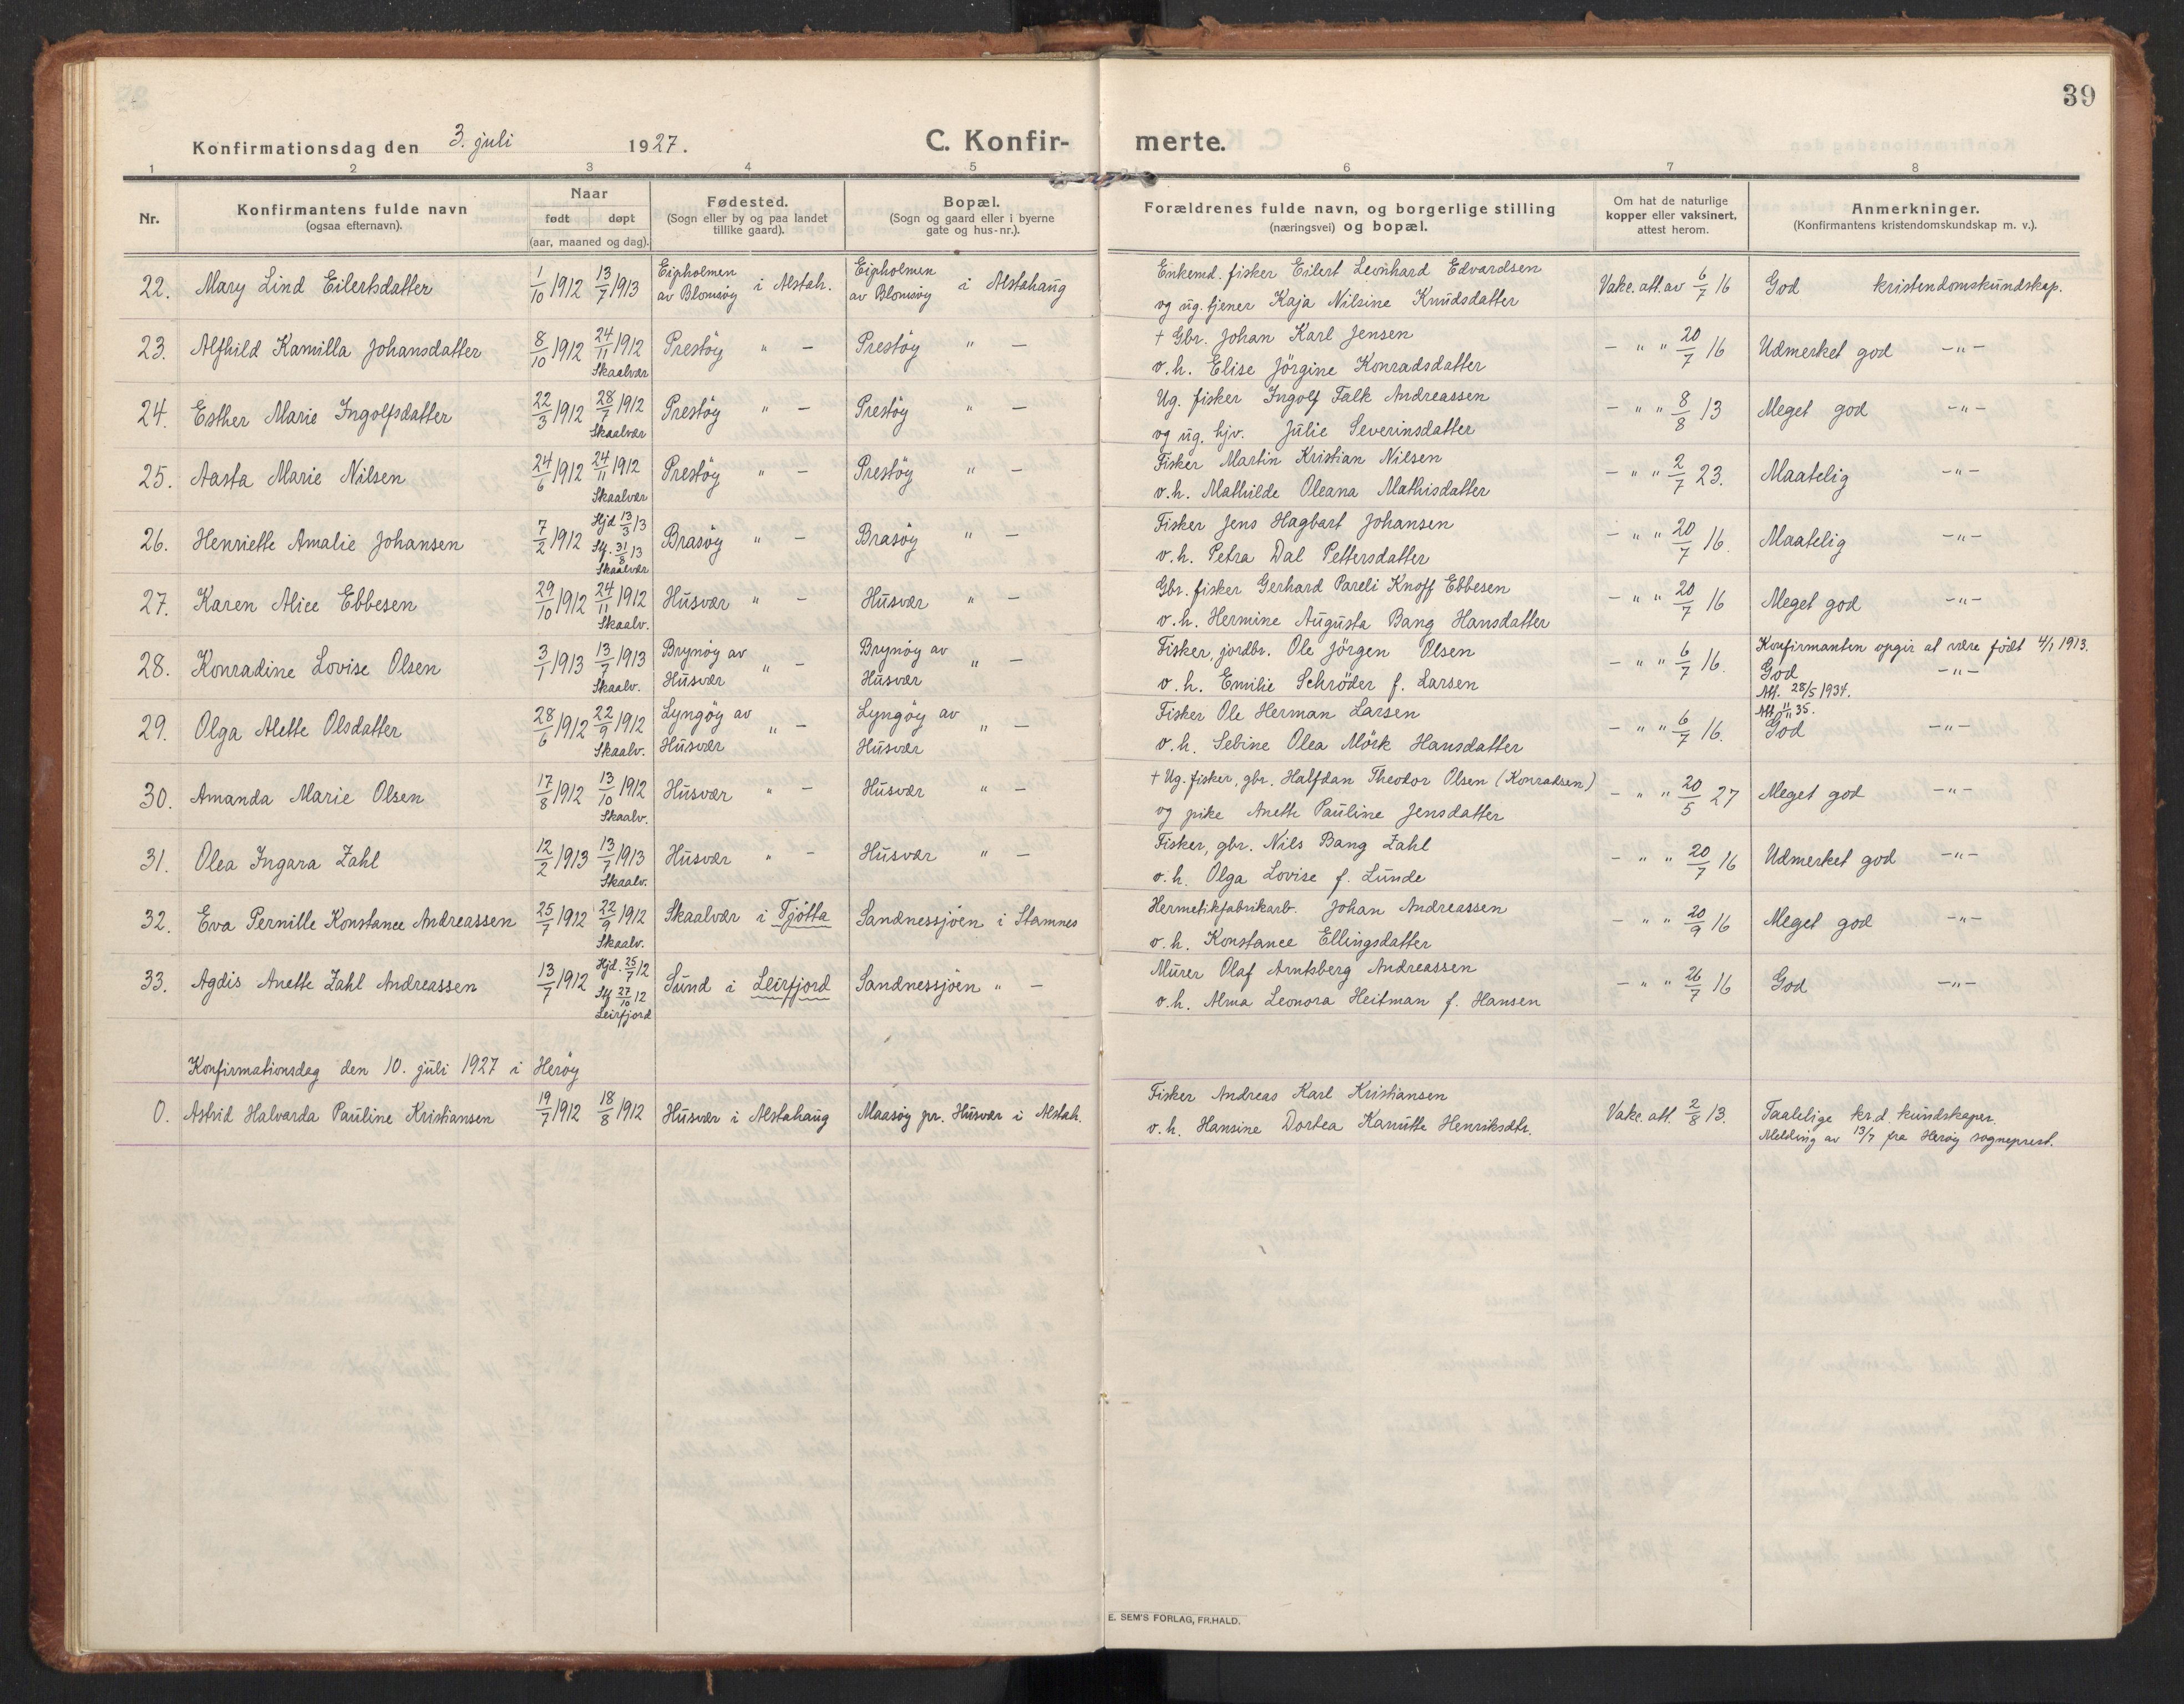 39
Konfirmationsdag den 3. juli 1927.
C. Konfir- merte.
1 2 3 4 5 6 7 8
Nr.
Konfirmantens fulde navn
(ogsaa efternavn).
Naar
født døpt
(aar, maaned og dag).
Fødested.
(Sogn eller by og paa landet
tillike gaard).
Bopæl.
(Sogn og gaard eller i byerne
gate og hus-nr.).
Forældrenes fulde navn, og borgerlige stilling
(næringsvei) og bopæl.
Om hat de naturlige
kopper eller vaksinert,
attest herom.
Anmerkninger.
(Konfirmantens kristendomskundskap m. v.).
22. Mary Lind Eilertsdatter 1/10 1912 13/7 1913 Eipholmen av Blomsøy i Alstah. Eipholmen av Blomsøy i Alstahaug
Enkemd. fisker Eilert Leonhard Edvardsen
og ug. tjener Kaja Nilsine Knudsdatter
Vakc. att. av 6/7 16 God kristendomskundskap.
23. Alfhild Kamilla Johansdatter 8/10 1912 24/11 1912 Skaalvær Prestøy " - Prestøy " -
+ Gbr. Johan Karl Jensen
o. h. Elise Jörgine Konradsdatter
- " " 20/7 16 Udmerket god -"-
24. Esther Marie Ingolfsdatter 22/3 1912 28/7 1912 Skaalvær Prestøy " - Prestøy " -
Ug. fisker Ingolf Falk Andreassen
og ug. hjv. Julie Severinsdatter
- " " 8/8 13 Meget god -"-
25. Aasta Marie Nilsen 24/6 1912 24/11 1912 Skaalvær Prestöy " - Prestöy " -
Fisker Martin Kristian Nilsen
o. h. Mathilde Oleana Mathisdatter
- " " 2/7 23. Maatelig -"-
26. Henriette Amalie Johansen 7/2 1912 Hjd 13/3 13 Stf. 31/8 13 Skaalvær Brasöy " - Brasöy " -
Fisker Jens Hagbart Johansen
o. h. Petra Dal Pettersdatter
- " " 20/7 16. Maatelig -"-
27. Karen Alice Ebbesen 29/10 1912 24/11 1912 Skaalv. Husvær " - Husvær " -
Gbr. fisker Gerhard Pareli Knoff Ebbesen
o. h. Hermine Augusta Bang Hansdatter
- " " 20/7 16 Meget god -"-
28. Konradine Lovise Olsen 3/1 1913 13/7 1913 Skaalv. Brynöy av Husvær " - Brynöy av Husvær " -
Fisker, jordbr. Ole Jörgen Olsen
o. h. Emilie Schröder f. Larsen
- " " 6/7 16. Konfirmanten opgir at være födt 4/1 1913.
God -"-
Att. 28/5 1934.
29. Olga Alette Olsdatter 28/6 1912 22/9 1912 Skaalv. Lyngöy av Husvær " - Lyngöy av Husvær " -
Fisker Ole Herman Larsen
o. h. Sebine Olea Mörk Hansdatter
- " " 6/7 16. Att. 11/11 35.
God -"-
30. Amanda Marie Olsen 17/8 1912 13/10 1912 Skaalv. Husvær " - Husvær " -
+ Ug. fisker, gbr. Halfdan Theodor Olsen (Konradsen)
og pike Anette Pauline Jensdatter
- " " 20/5 27 Meget god -"-
31. Olea Ingara Zahl 12/2 1913 13/7 1913 Skaalv. Husvær " - Husvær " -
Fisker, gbr. Nils Bang Zahl
o. h. Olga Lovise f. Lunde
- " " 20/7 16 Udmerket god -"-
32. Eva Pernille Konstance Andreassen 25/7 1912 22/9 1912 Skaalv. Skaalvær i Tjötta Sandnessjöen i Stamnes
Hermetikfabrikarb. Johan Andreassen
o. h. Konstance Ellingsdatter
- " " 20/9 16 Meget god -"-
33. Agdis Anette Zahl Andreassen 13/7 1912 Hjd. 25/7 12 Stf 27/10 12 Leirfjord Sund i Leirfjord Sandnessjöen " -
Murer Olaf Arntsberg Andreassen
o. h. Alma Leonora Heitman f. Hansen
- " " 26/7 16 God -"-
Konfirmationsdag den 10. juli 1927 i Heröy
0. Astrid Halvarda Pauline Kristiansen 19/7 1912 18/8 1912 Husvær i Alstahaug Maasöy pr. Husvær i Alstah.
Fisker Andreas Karl Kristiansen
o. h. Hansine Dortea Kanutte Henriksdtr.
Vakc. att. 2/8 13. Taalelige kr.d. kundskaper.
Melding av 13/7 fra Heröy sogneprest.
E. SEM'S FORLAG, FR.HALD.